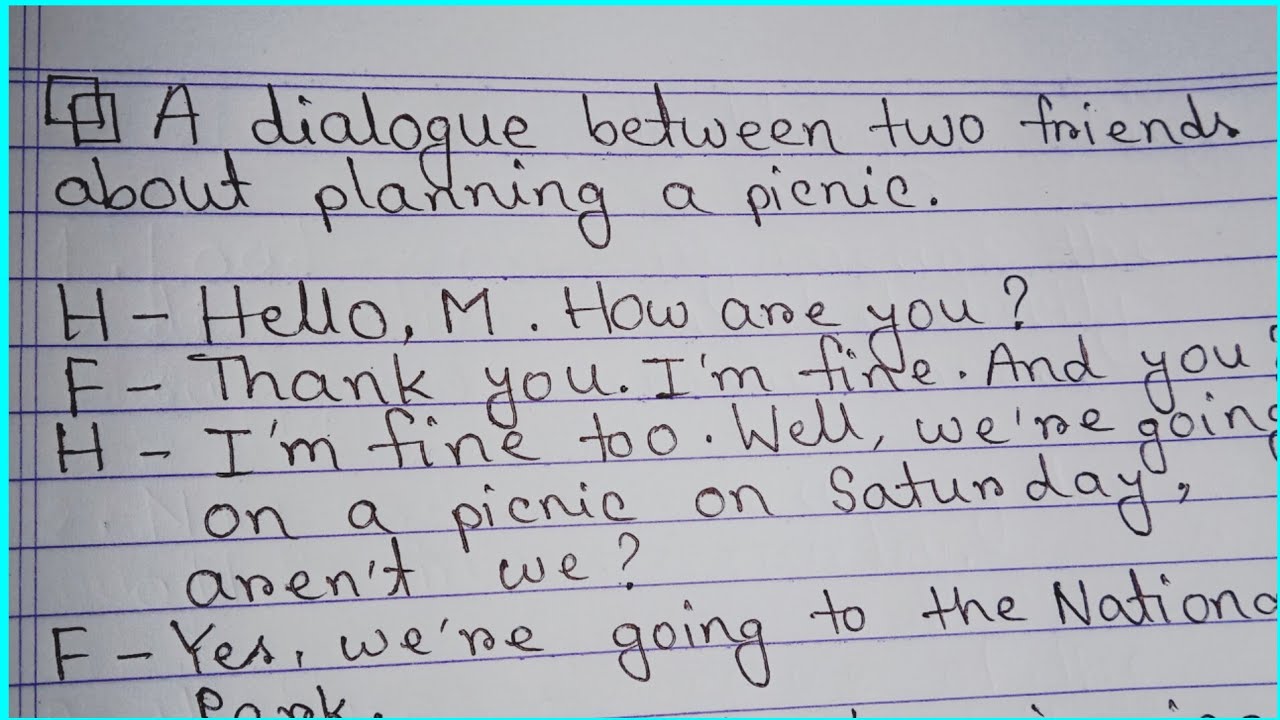 A dialogue between two friends
about planning a picnic.
H - Hello, M. How are you?
F - Thank you. I'm fine. And you?
H - I'm fine too. Well, we're going
on a picnic on Saturday,
aren't we?
F - Yes, we're going to the Nationa
Park.